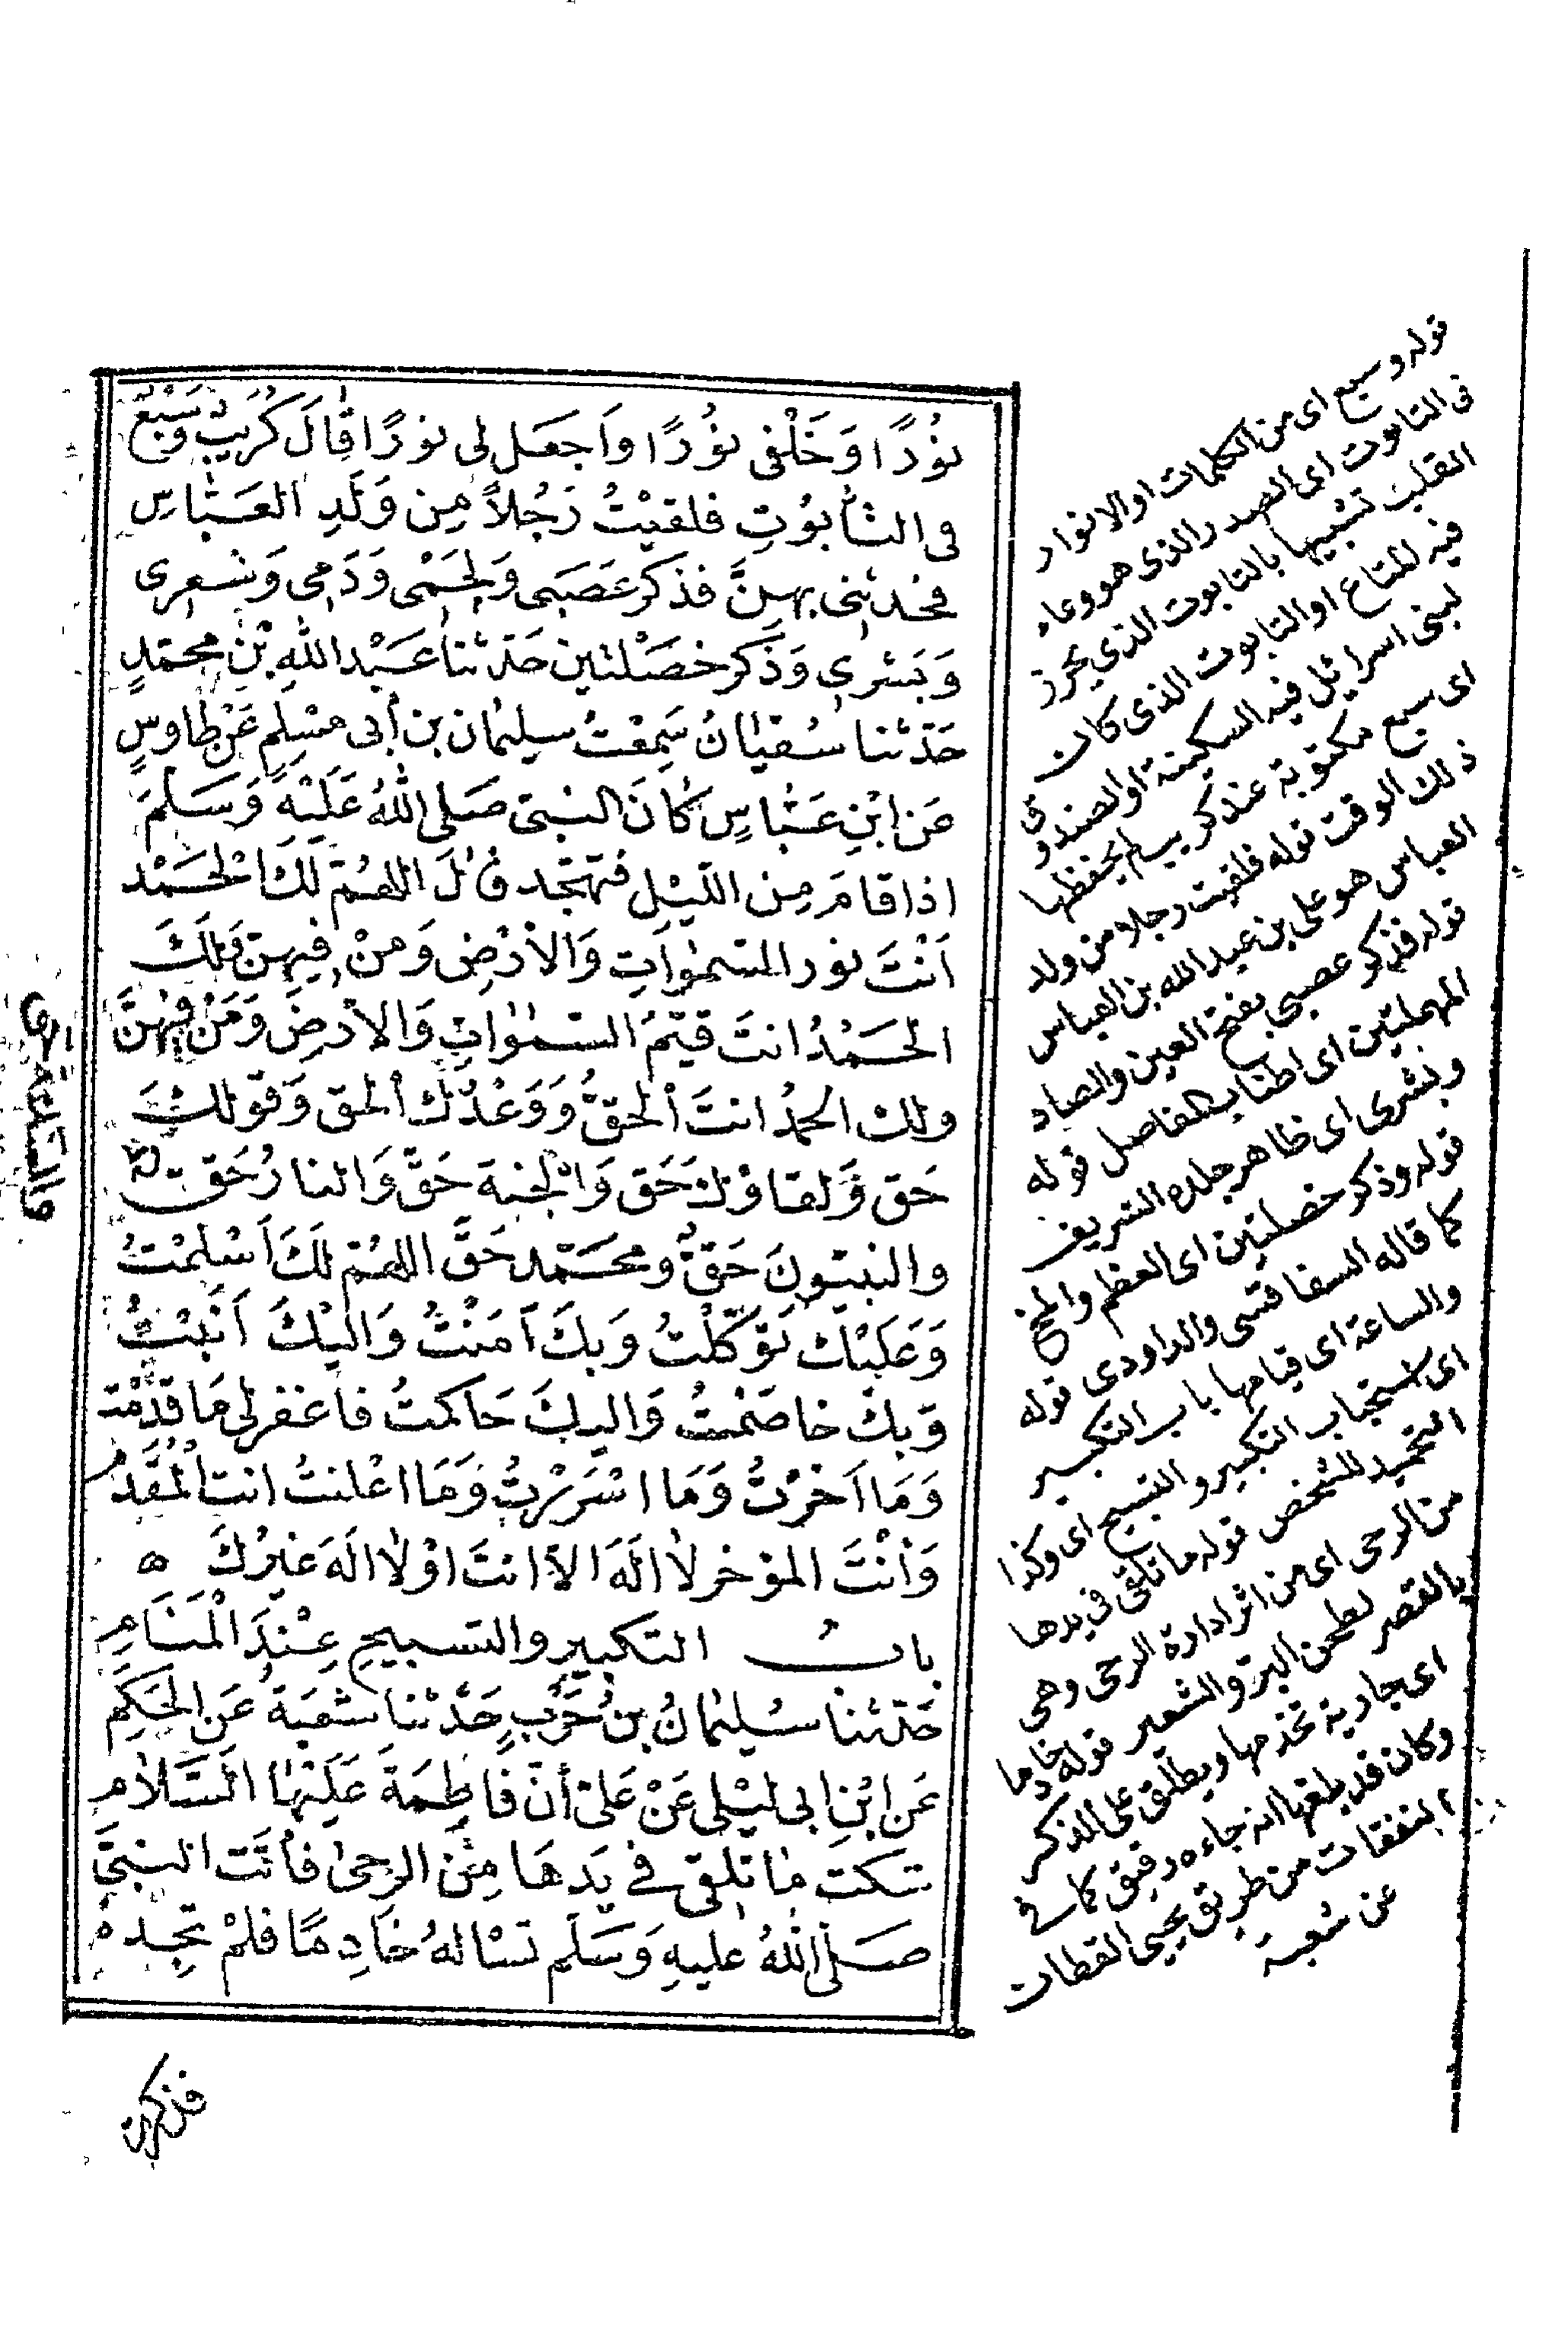 نُوْرًا وَخَلْفى نُوْرًا وَاجعَل لى نورًا قَالَ كُرَيبٌ وَسَبْعٌ
فى التَّابوُتِ فلقيْتُ رَجُلاً مِن وَلَدِ العَبَّاسِ
فحدثنى بهِنَّ فذكر عَصَبى وَلحَمْى وَدَمِى وَشعرِى
وَبَشرى وَذكر خصَلتين حَدثنا عَبْد اللهِ بْنِ محمّدٍ
حَدثنا سُفيَانُ سَمِعْتُ سليمان بن أبى مسْلِمٍ عَنْ طاوسٍ
عَن ابْنِ عَبَّاسٍ كَانَ النبىّ صَلى اللهُ عَلَيْهِ وَسَلمَ
اذا قامَ مِن اللّيْلِ فتهجّد قالَ اللهمّ لكَ الْحَمْد
اَنْتَ نور السّموَاتِ وَالأرْضِ وَمنْ فِيهنّ وَلكَ
الحَمْدُ انتَ قيّمُ السّموَاتِ وَالأرضِ وَمَنْ فِيْهنَّ
ولك الحمدُ انتَ الحَقُّ وَوَعْدُكَ الحق وَقولك
حَق وَلقاؤكَ حَق وَالْجنة حَقّ وَالنارُ حَق
والسّاعَة حَق
والنبيّونَ حَقّ ومحَمّد حَقّ اللهُمّ لكَ اَسْلمْتُ
وَعَليْك تَوَكّلْتُ وَبكَ آمَنْتُ وَاليْكَ اَنَبْتُ
وَبكَ خاصَمْتُ وَاليكَ حَاكمتُ فاغفرلى مَا قدّمْت
وَمَا اَخرْتُ وَمَا اسْرَرْتُ وَمَا اعْلنتُ انتَ الْمُقَدّمُ
وَأنْتَ المؤخر لا اِلَهَ الا انتَ اوْ لا الهَ غيرُكَ ه
بابُ التكبيرِ والتسبيحِ عِنْدَ الْمَنَامِ
حَدثنا سُليمانُ بنُ حَرْبٍ حَدْثنا شعبَةُ عَن الحَكَمِ
عَن ابْنِ ابى ليْلى عَنْ عَلىّ أنّ فَاطِمَةَ عَلَيْهَا السّلام
شكت ما تلقى في يَدهَا مِنَ الرحى فأتَت النبىَّ
صَلى اللهُ عليهِ وَسَلم تسْالهُ خادِمًا فلمْ تجِده
فذكرت
قوله وسبع اى من الكلمات او الانوار
فى التابوت اى الصدر الذى هو وعاء
القلب تشبيها بالتابوت الذي يحرز
فيه المتاع او التابوت الذى كان
لبنى اسرائيل فيه السكينة او الصندوق
اى سبع مكتوبة عند كريب لم يحفظها
ذلك الوقت قوله فلقيت رجلا من ولد
العباس هو على بن عبد الله بن العباس
قوله فذكر عصبى بفتح العين والصاد
المهملتين اى اطناب المفاصل قوله
وبشرى اى ظاهر جلده الشريف
قوله وذكر خصلتين اى العظم والمخ
كما قاله السفاقسى والداودى قوله
والساعة اى قيامها باب التكبير
اى استحباب التكبير والتسبيح اى وكذا
التحميد للشخص قوله ما تلقى فى يدها
من الرحى اى من اثر ادارة الرحى وهى
بالقصر لطحن البر والشعير قوله خادما
اى جارية تخدمها ويطلق على الذكر
وكان قد بلغها انه جاءه رقيق كما في
النفقات من طريق يحيى القطان
عن شعبة